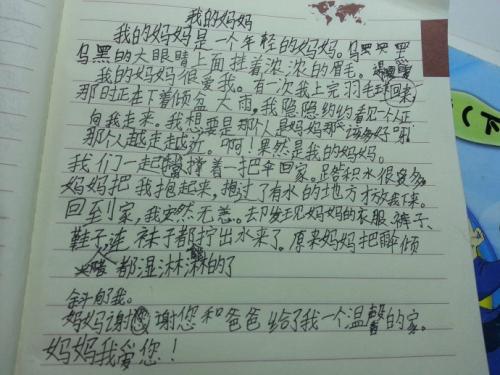 我的妈妈
我的妈妈是一个年轻的妈妈。乌
乌黑的大眼睛上面挂着浓浓的眉毛。
我的妈妈很爱我。有一次我上完羽毛球回来
那时正在下着倾盆大雨,我隐隐约约看见一个人正
向我走来。我想要是那个人是妈妈那该多好呀
那个人越走越近。啊!果然是我的妈妈。
我们一起撑着一把伞回家。路积水很多
妈妈把我抱起来,抱过了有水的地方才放我下来。
回到家,我安然无恙。却发现妈妈的衣服、裤子、
鞋子,连袜子都拧出水来了。原来妈妈把雨伞倾
都湿淋淋的了
斜向了我。
妈妈谢谢您和爸爸给了我一个温馨的家。
妈妈我爱您!
下